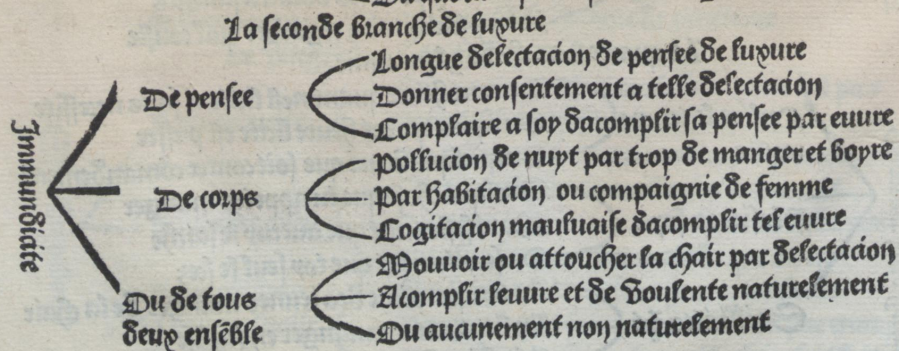 La seconde branche de luxure
Immundicite
De pensee
Longue delectacion de pensee de luxure
Donner consentement a telle delectacion
Complaire a soy dacomplir sa pensee par euure
De corps
Pollucion de nuyt par trop de manger et boyre
Par habitacion ou compaignie de femme
Cogitacion mauluaise dacomplir tel euure
Ou de tous
deux ensēble
Mouuoir ou attoucher la chair par delectacion
Acomplir leuure et de voulente naturelement
Ou aucunement non naturelement